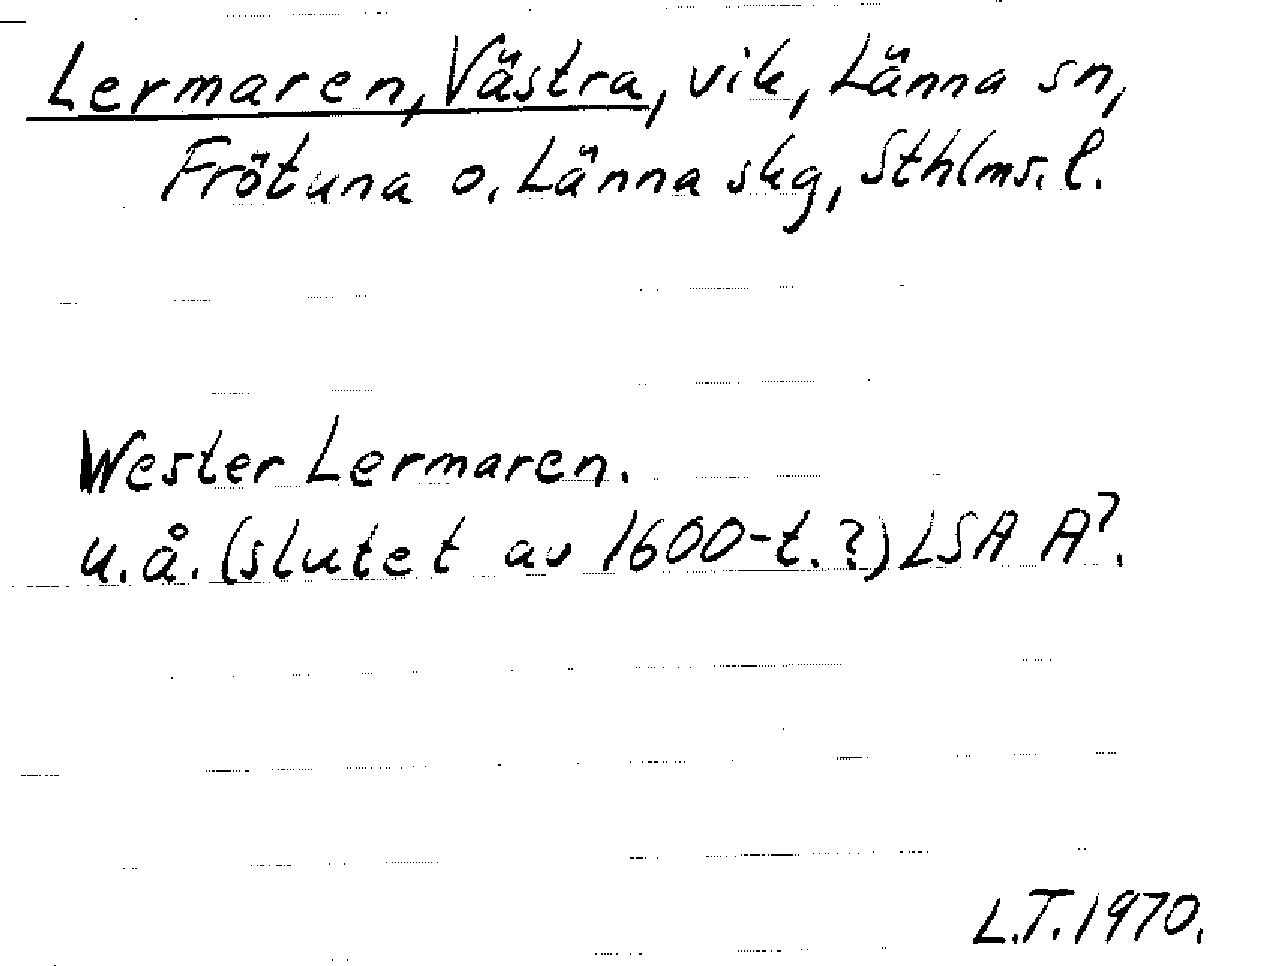 Lermaren, Västra, vik, Länna sn,
Frötuna o. Länna skg, Sthlms. l.
Wester Lermaren.
u.å. (slutet av 1600-t.?) LSA A?.
L.T. 1970.